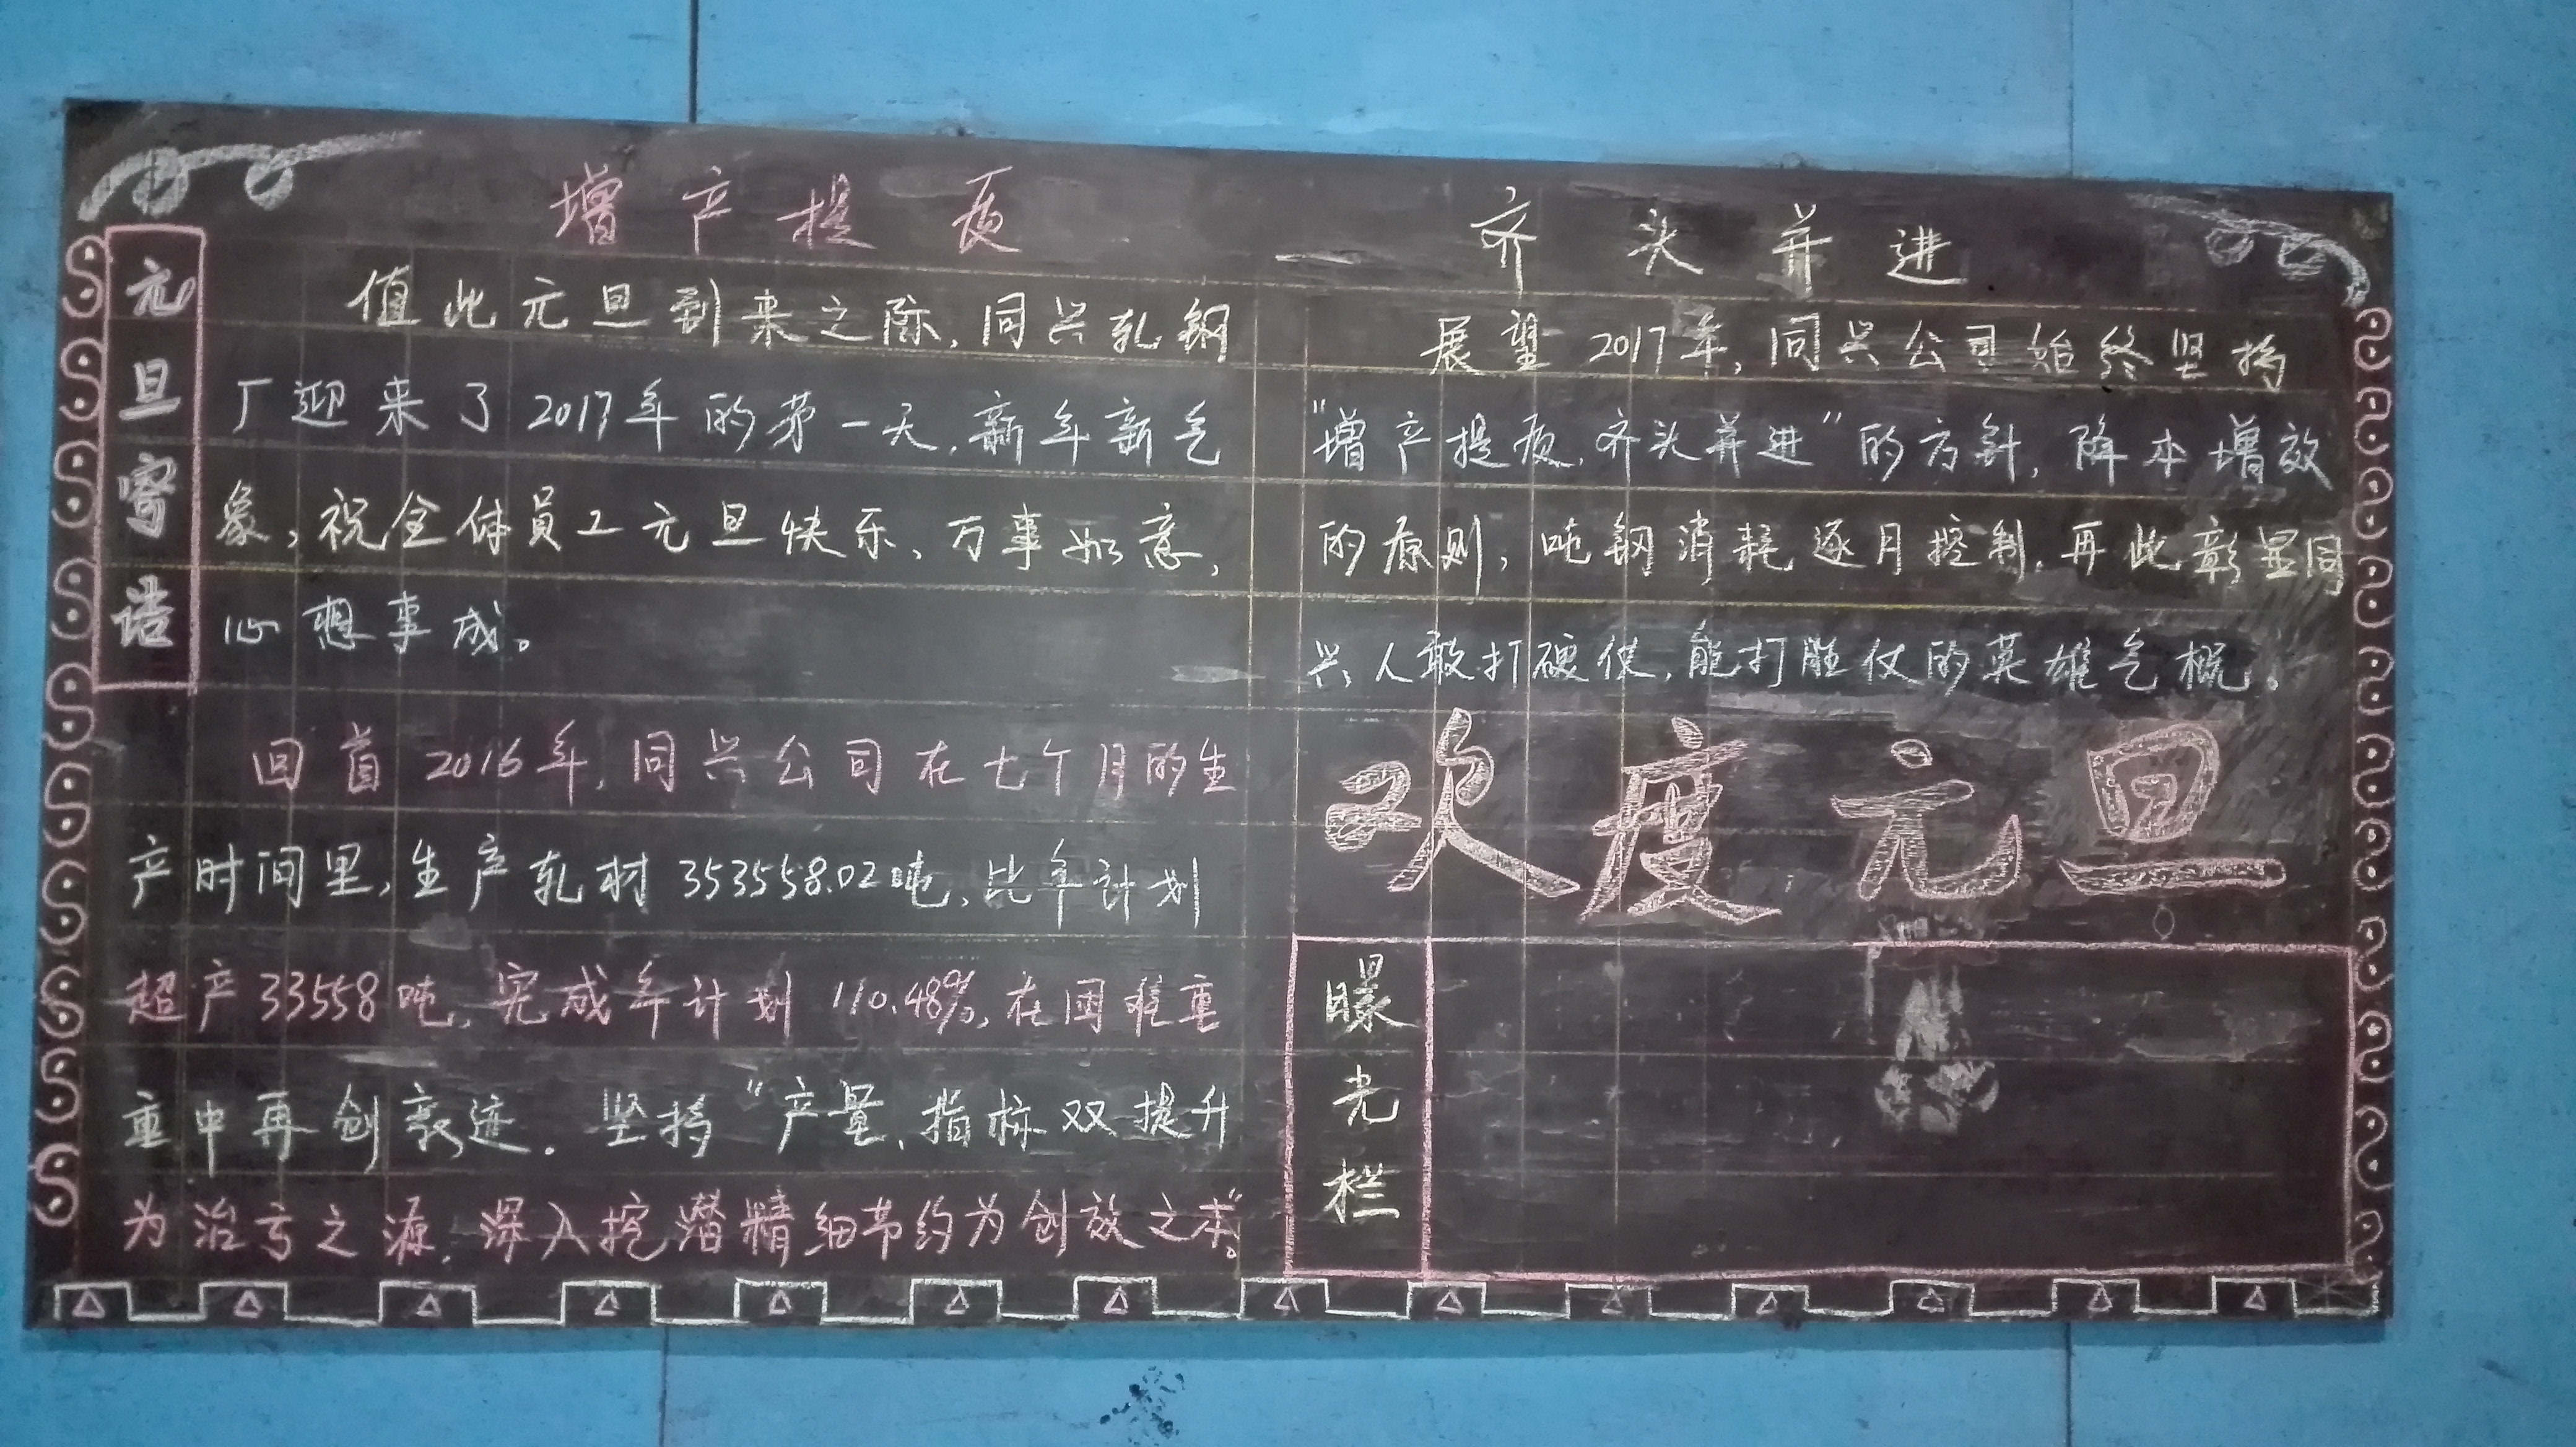 增产提质
元旦寄语
值此元旦到来之际,同兴轧钢
厂迎来了2017年的第一天,新年新气
象,祝全体员工元旦快乐,万事如意,
心想事成。
回首2016年,同兴公司在七个月的生
产时间里,生产轧材353558.02吨,比年计划
超产33558吨,完成年计划110.48%,在困难重
重中再创辉迹。坚持“产量,指标双提升
为治亏之源,深入挖潜精细节约为创效之本”。
齐头并进
展望2017年,同兴公司始终坚持
“增产提质,齐头并进”的方针,降本增效
的原则,吨钢消耗逐月控制,再此彰显同
兴人敢打硬仗,能打胜仗的英雄气概。
欢度元旦
曝光栏